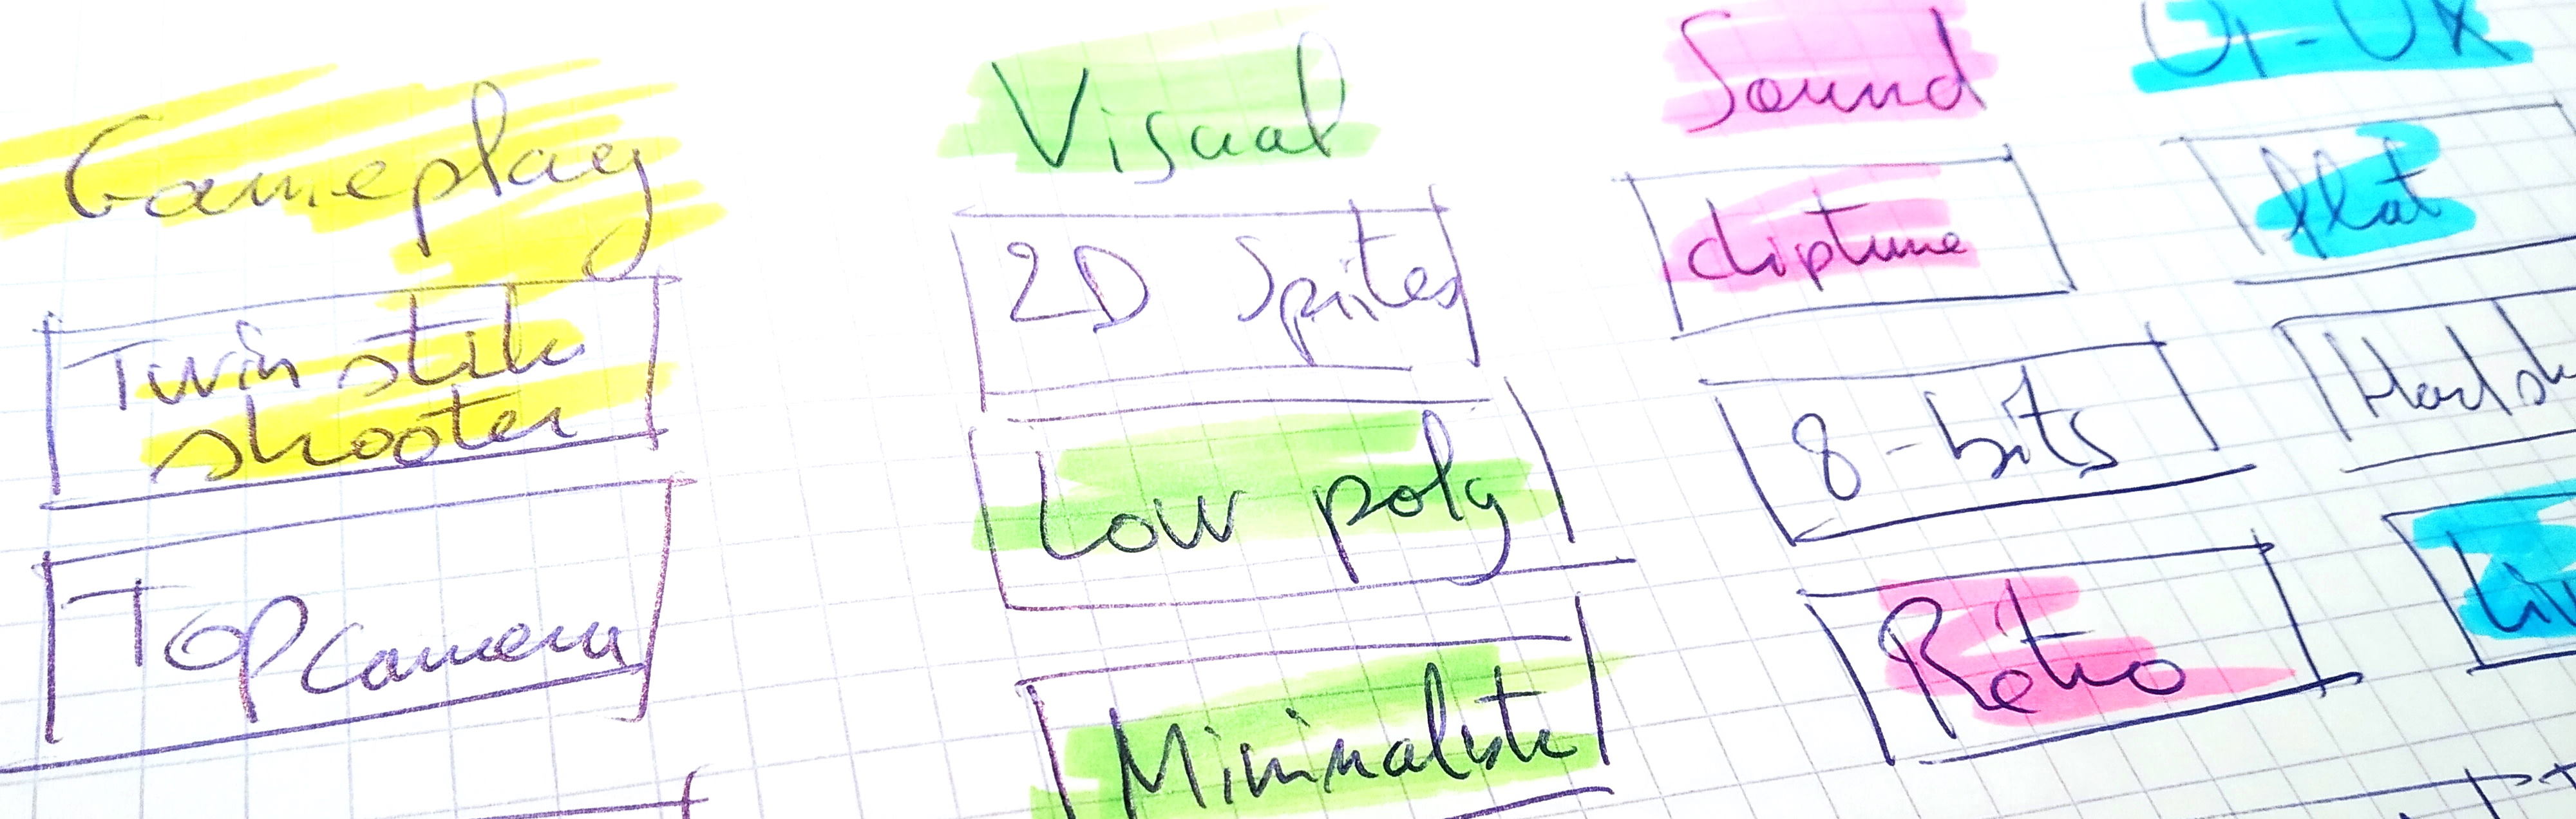 Gameplay
Twin stik
shooter
Top camera
Visual
2D Sprites
Low poly
Minimaliste
Sound
chiptune
8-bits
Retro
UI-UX
flat